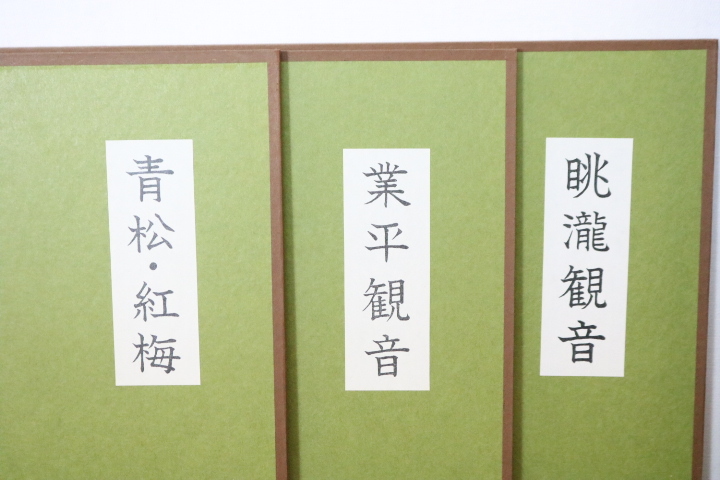 眺瀧観音
業平観音
青松・紅梅